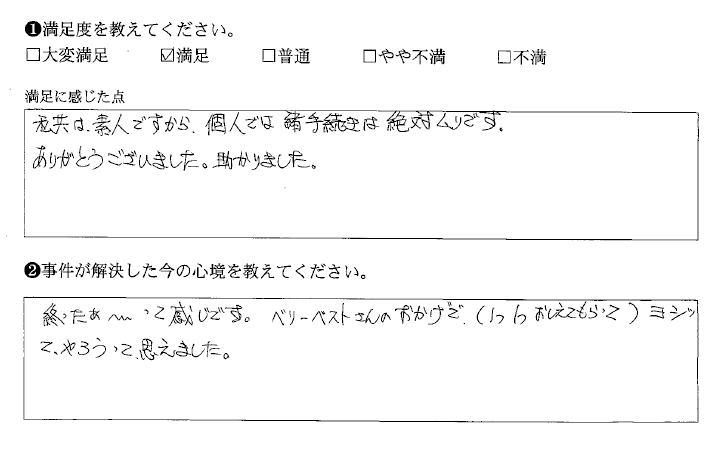 ❶満足度を教えてください。
□大変満足 ☑満足 □普通 □やや不満 □不満
満足に感じた点
私共は、素人ですから、個人では諸手続きは絶対ムリです。
ありがとうございました。助かりました。
❷事件が解決した今の心境を教えてください。
終ったぁ〜って感じです。ベリーベストさんのおかげで、(1つ1つおしえてもらって)ヨシッ
て、やろうって、思えました。